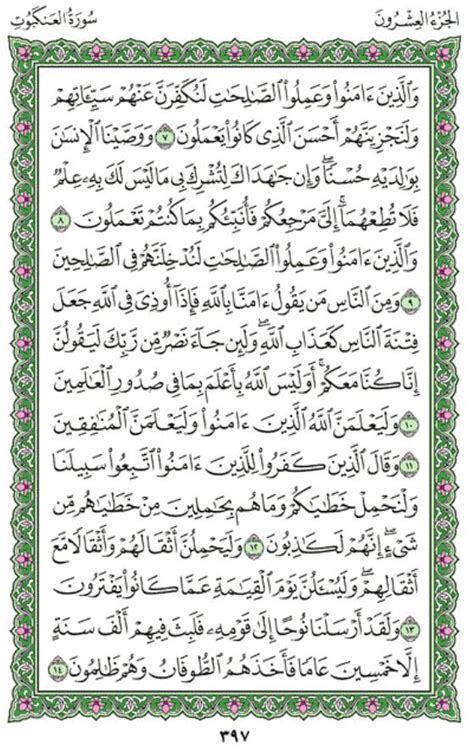 الجزء العشرون
سورة العنكبوت
وَٱلَّذِينَ ءَامَنُوا۟ وَعَمِلُوا۟ ٱلصَّٰلِحَٰتِ لَنُكَفِّرَنَّ عَنْهُمْ سَيِّـَٔاتِهِمْ
وَلَنَجْزِيَنَّهُمْ أَحْسَنَ ٱلَّذِى كَانُوا۟ يَعْمَلُونَ ٧ وَوَصَّيْنَا ٱلْإِنسَٰنَ
بِوَٰلِدَيْهِ حُسْنًا ۖ وَإِن جَٰهَدَاكَ لِتُشْرِكَ بِى مَا لَيْسَ لَكَ بِهِۦ عِلْمٌ
فَلَا تُطِعْهُمَآ ۚ إِلَىَّ مَرْجِعُكُمْ فَأُنَبِّئُكُم بِمَا كُنتُمْ تَعْمَلُونَ ٨
وَٱلَّذِينَ ءَامَنُوا۟ وَعَمِلُوا۟ ٱلصَّٰلِحَٰتِ لَنُدْخِلَنَّهُمْ فِى ٱلصَّٰلِحِينَ
٩ وَمِنَ ٱلنَّاسِ مَن يَقُولُ ءَامَنَّا بِٱللَّهِ فَإِذَآ أُوذِىَ فِى ٱللَّهِ جَعَلَ
فِتْنَةَ ٱلنَّاسِ كَعَذَابِ ٱللَّهِ ۖ وَلَئِن جَآءَ نَصْرٌ مِّن رَّبِّكَ لَيَقُولُنَّ
إِنَّا كُنَّا مَعَكُمْ ۚ أَوَلَيْسَ ٱللَّهُ بِأَعْلَمَ بِمَا فِى صُدُورِ ٱلْعَٰلَمِينَ
١٠ وَلَيَعْلَمَنَّ ٱللَّهُ ٱلَّذِينَ ءَامَنُوا۟ وَلَيَعْلَمَنَّ ٱلْمُنَٰفِقِينَ
١١ وَقَالَ ٱلَّذِينَ كَفَرُوا۟ لِلَّذِينَ ءَامَنُوا۟ ٱتَّبِعُوا۟ سَبِيلَنَا
وَلْنَحْمِلْ خَطَٰيَٰكُمْ وَمَا هُم بِحَٰمِلِينَ مِنْ خَطَٰيَٰهُم مِّن
شَىْءٍ ۖ إِنَّهُمْ لَكَٰذِبُونَ ١٢ وَلَيَحْمِلُنَّ أَثْقَالَهُمْ وَأَثْقَالًا مَّعَ
أَثْقَالِهِمْ ۖ وَلَيُسْـَٔلُنَّ يَوْمَ ٱلْقِيَٰمَةِ عَمَّا كَانُوا۟ يَفْتَرُونَ
١٣ وَلَقَدْ أَرْسَلْنَا نُوحًا إِلَىٰ قَوْمِهِۦ فَلَبِثَ فِيهِمْ أَلْفَ سَنَةٍ
إِلَّا خَمْسِينَ عَامًا فَأَخَذَهُمُ ٱلطُّوفَانُ وَهُمْ ظَٰلِمُونَ ١٤
٣٩٧